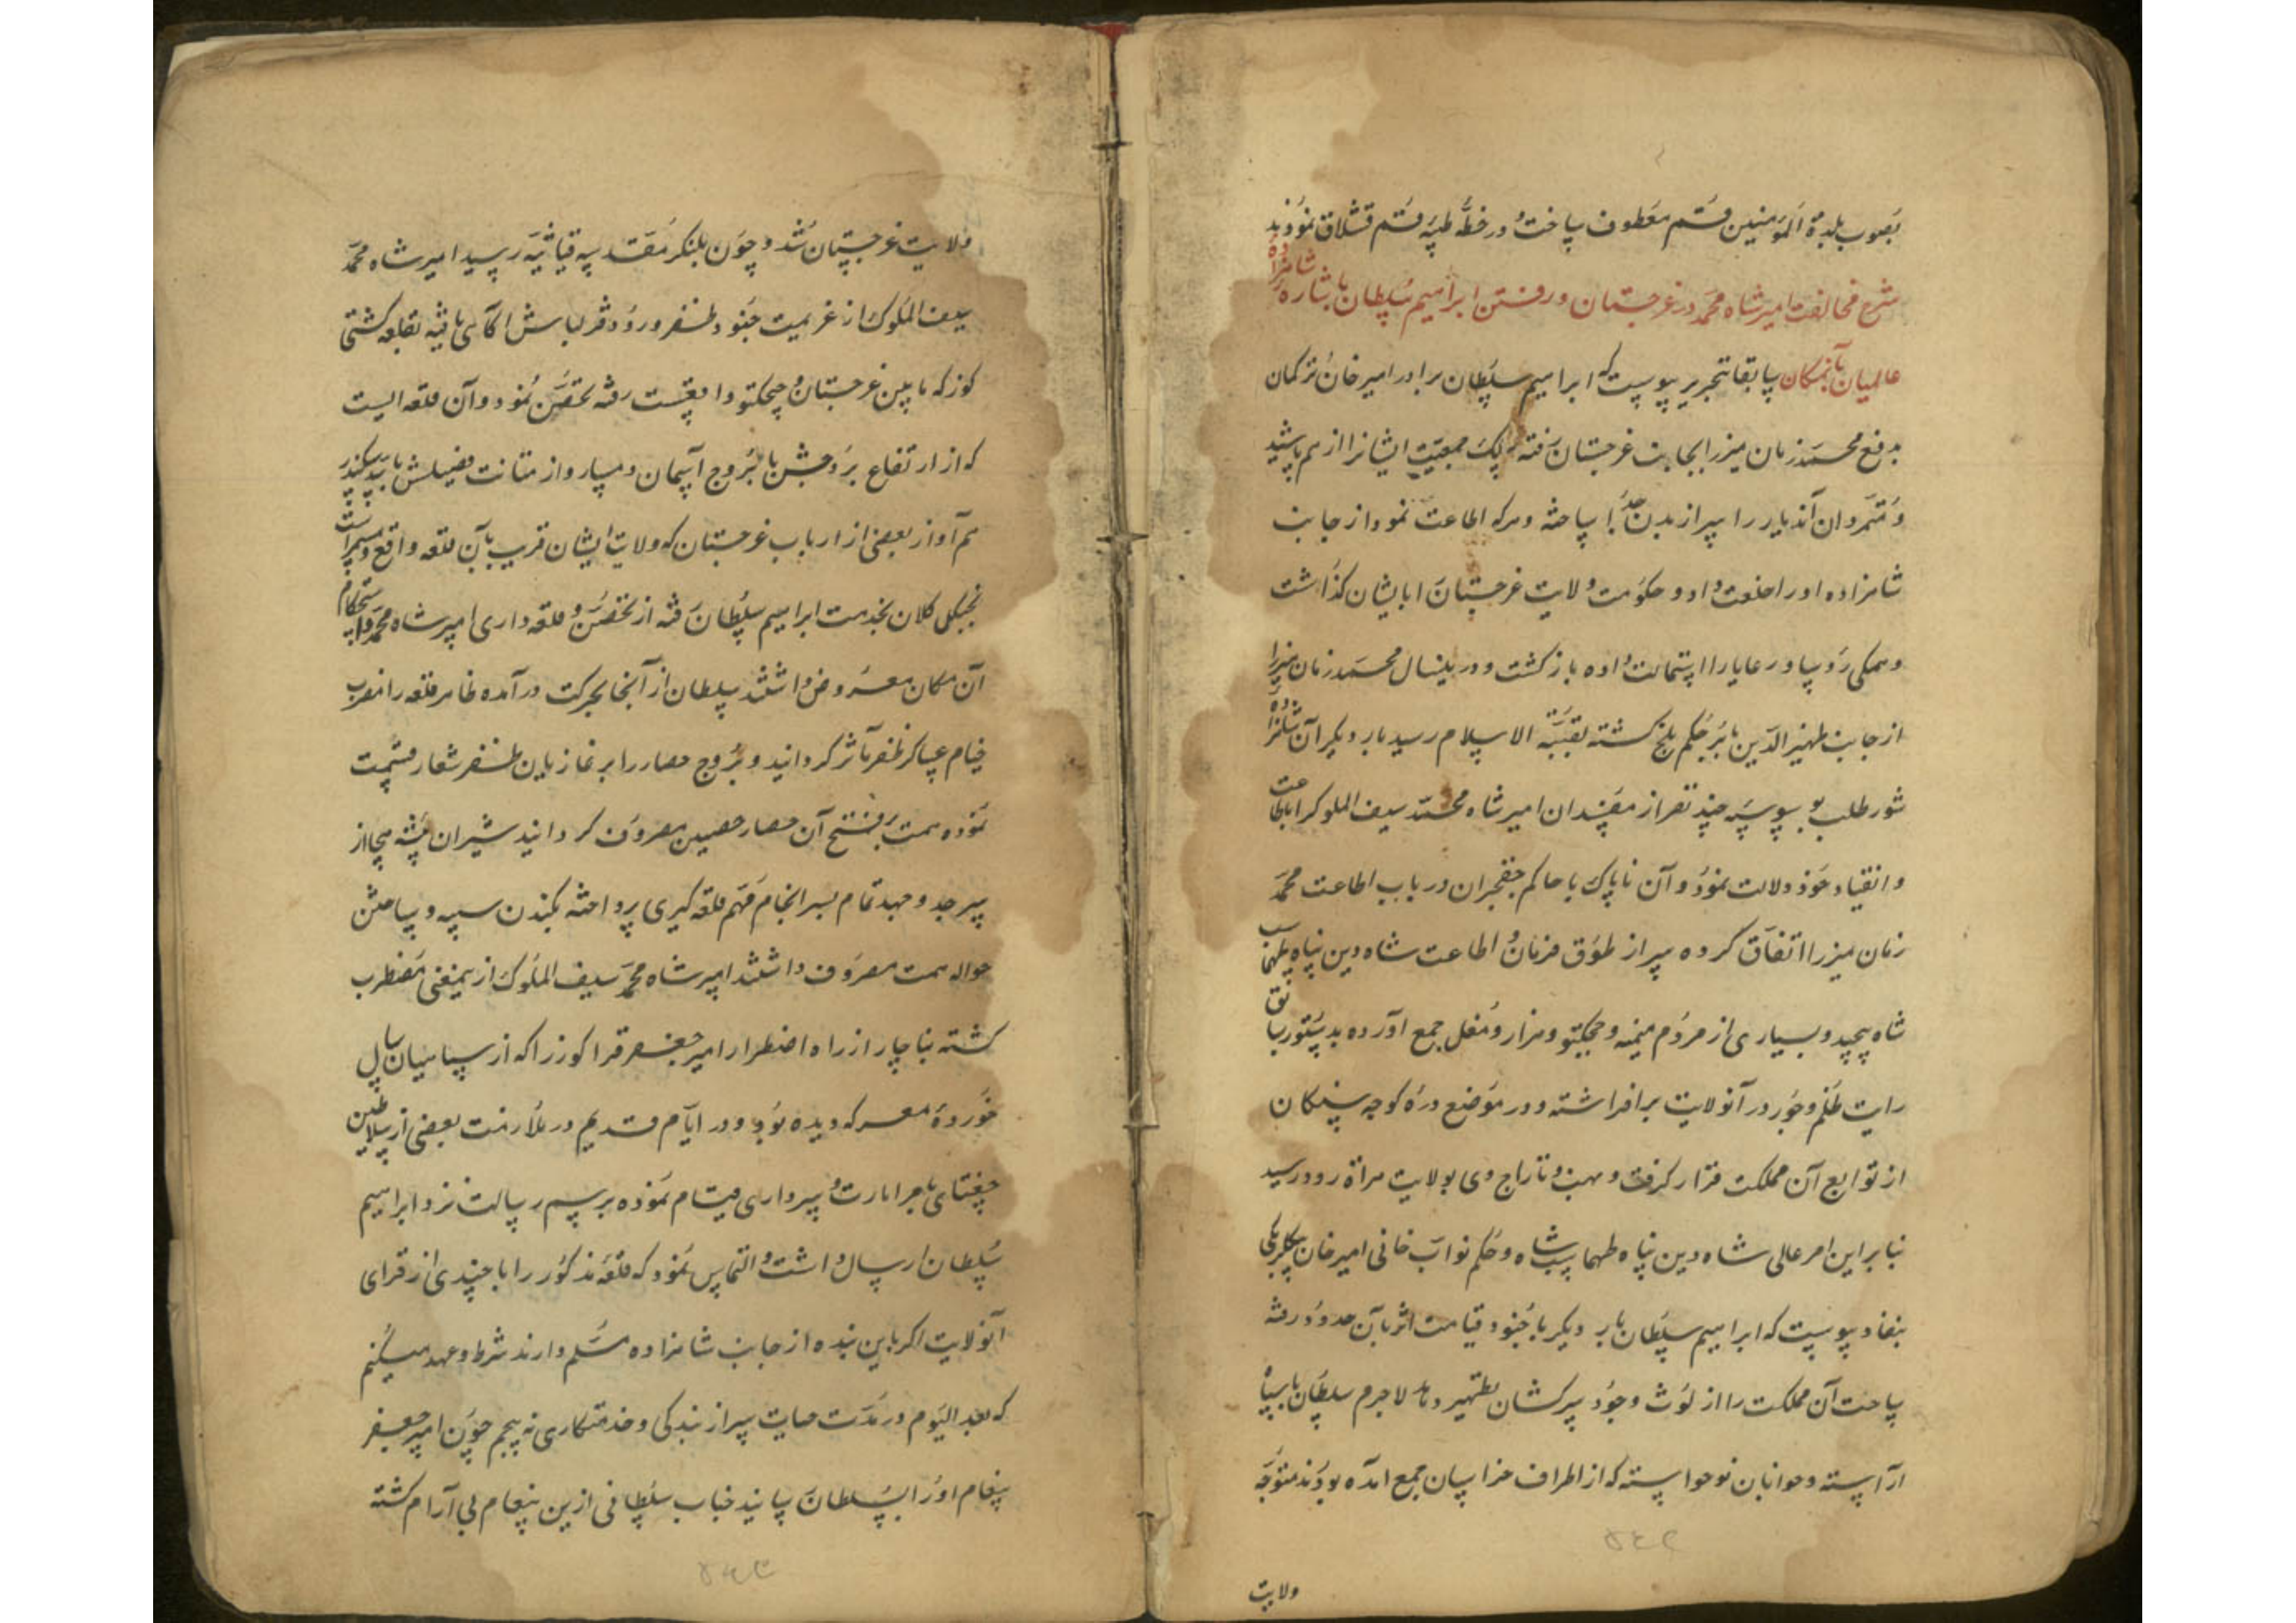 بصوب بلدة المومنین قم معطوف ساخت و در خطهٔ طیبه قم قشلاق نمودند
شرح مخالفت امیر شاه محمد در غرجستان و رفتن ابراهیم سلطان باشاره شاهزاده
عالمیان بآنمکان سابقا بتحریر پیوست که ابراهیم سلطان برادر امیر خان ترکمان
بدفع محمد زمان میرزا بجانب غرجستان رفته سلک جمعیت ایشانرا از هم پاشید
و متمردان آندیار را سر از بدن جدا ساخته و هر که اطاعت نمود از جانب
شاهزاده او را خلعت داد و حکومت ولایت غرجستان را بایشان گذاشت
و همکی رؤسا و رعایا را استمالت داده باز کشت و درینسال محمد زمان میرزا
از جانب ظهیر الدین بابر حاکم بلخ کشته بقبة الاسلام رسید بار دیکر آن
شور طلب بوسوسه چند نفر از مفسدان امیر شاه محمد سیف الملوک را باطاعت
و انقیاد خود دلالت نمود و آن ناپاک با حاکم جقجران در باب اطاعت محمد
زمان میرزا اتفاق کرده سر از طوق فرمان و اطاعت شاه دین پناه طهماسب
شاه پیچید و بسیاری از مردم میمنه و چیچکتو و هزار و مغل جمع آورده بدستور سابق
رایت ظلم و جور در آنولایت برافراشته و در موضع درهٔ کوچه سنکان
از توابع آن مملکت قرار کرفت و نهب و تاراج وی بولایت هراة رود رسید
بنا براین امر عالی شاه دین پناه طهماسب شاه و حکم نواب خانی امیر خان بیکلربیکی
بنفاد پیوست که ابراهیم سلطان بار دیکر با جنود قیامت اثر بآن حدود رفته
ساحت آن مملکت را از لوث وجود سرکشان تطهیر دهد لاجرم سلطان با سپاه
آراسته و جوانان نوخواسته که از اطراف خراسان جمع آمده بودند متوجه
ولایت
ولایت غرجستان شد و چون بلنکر مقدسه قیاثیه رسید امیر شاه محمد
سیف الملوک از عزیمت جنود ظفر ورود قزلباش آکاهی یافته بقلعه کشتی
کوزکه مابین غرجستان و چیچکتو واقعست رفته تحصن نمود و آن قلعه ایست
که از ارتفاع بروجش با بروج آسمان دمساز و از متانت فصیلش با سد سکندر
هم آواز بعضی از ارباب غرجستان که ولایت ایشان قریب بآن قلعه واقع است
کلان بخدمت ابراهیم سلطان رفته از تحصن و قلعه داری امیر شاه محمد و استحکام
آن مکان معروض داشتند سلطان از آنجا بحرکت در آمده ظاهر قلعه را مضرب
خیام عساکر ظفر مآثر کردانید و بروج حصار را بر غازیان ظفر شعار قسمت
نموده همت بر فتح آن حصار حصین مصروف کردانید شیران بیشه هیجا از
سر جد و جهد تمام بسر انجام مهم قلعه کیری پرداخته بکندن سیبه و ساختن
حواله همت مصروف داشتند امیر شاه محمد سیف الملوک از ینمعنی مضطرب
کشته بناچار از راه اضطرار امیر جعفر قراکوز را که از سپاهیان سال
خوردهٔ معرکه دیده بود و در ایام قدیم در ملازمت بعضی از سلاطین
جغتای بامر امارت و سرداری قیام نموده برسم رسالت نزد ابراهیم
سلطان ارسال داشت و التماس نمود که قلعهٔ مذکور را با چندی از قرای
آنولایت اکر باین بنده از جانب شاهزاده مسلم دارند شرط و عهد میکنم
که بعد الیوم در مدت حیات سر از بندکی و خدمتکاری نه پیچم چون امیر جعفر
پیغام او را بسلطان رسانید جناب سلطانی ازین پیغام بی آرام کشته